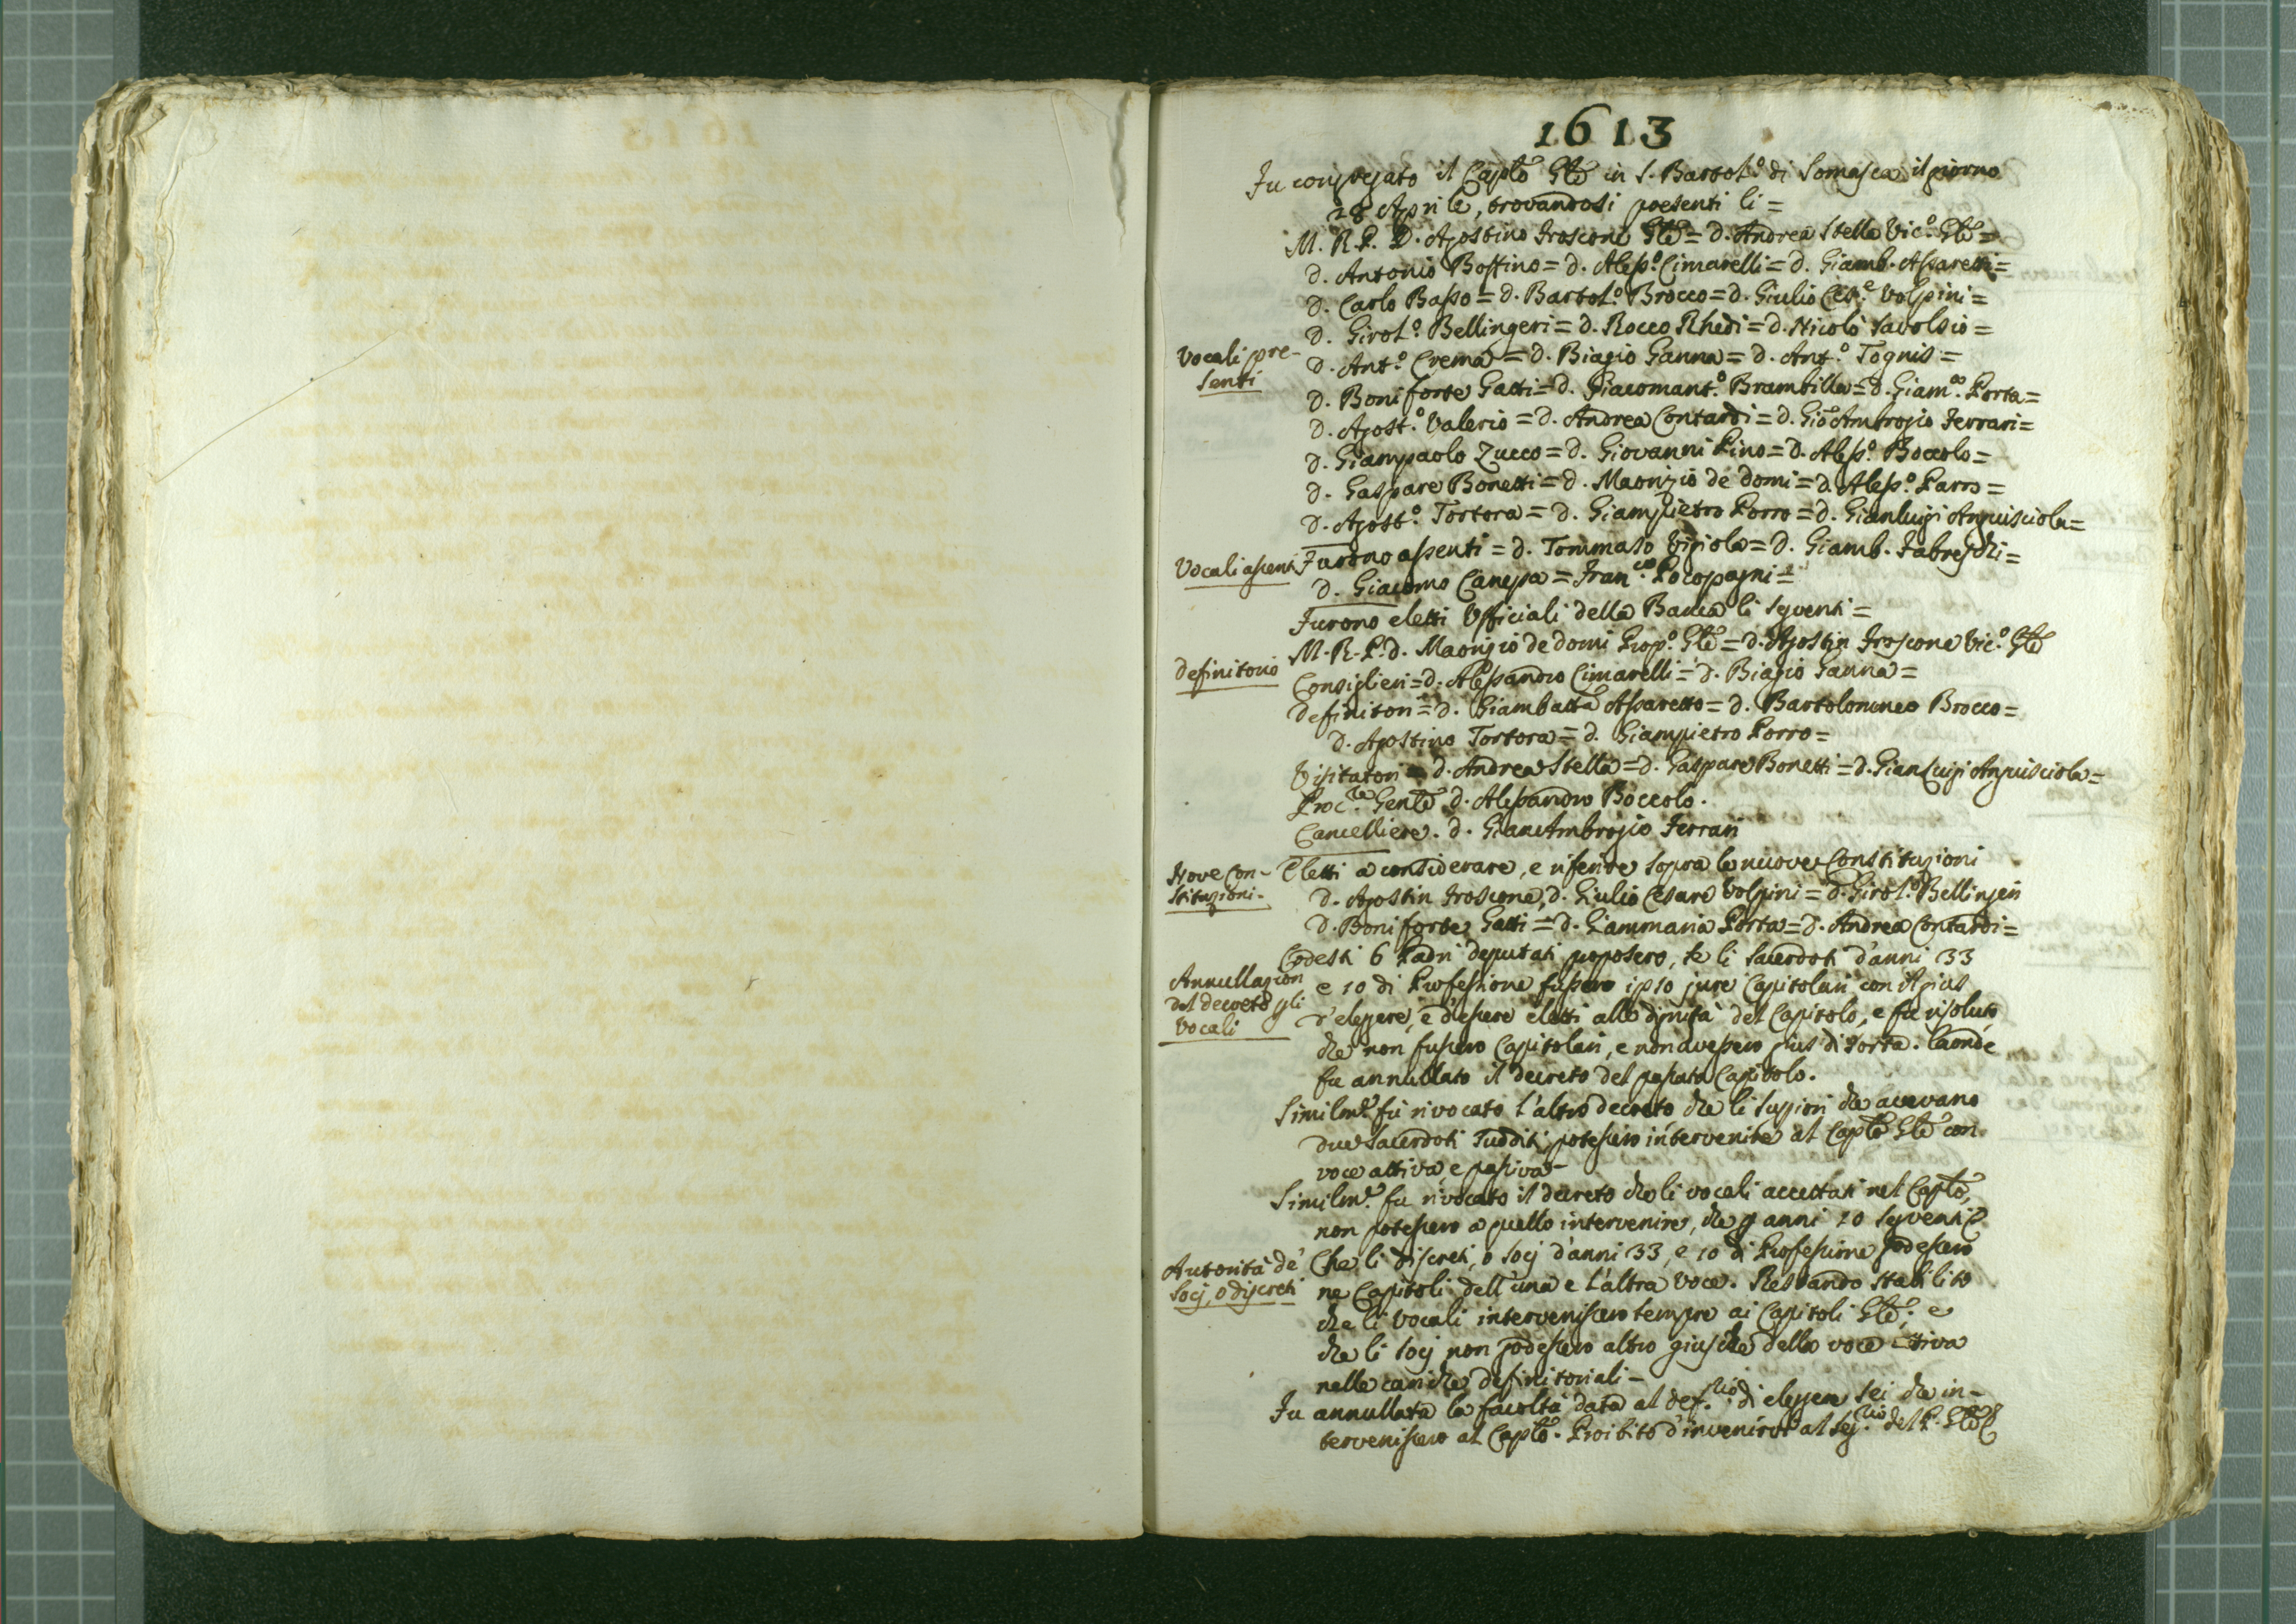 1613
Fu congregato il Caplo Gle in S. Bartol.o di Somasca il giorno
28 Aprile, trovandosi presenti li =
M. R. P. D. Agostino Froscone Gle = D. Andrea Stella Vic.o Gle =
D. Antonio Boffino = D. Aless.o Cimarelli = D. Giamb. Assaretti =
D. Carlo Basso = D. Bartol.o Brocco = D. Giulio Ces.e Volpini =
D. Girol.o Bellingeri = D. Rocco Rhedi = D. Nicolò Tavolsio =
Vocali pre-
senti
D. Ant.o Crema = D. Biagio Ganna = D. Ant.o Tognis =
D. Boniforte Gatti = D. Giacomant.o Brambilla = D. Giam.a Porta =
D. Agost.o Valerio = D. Andrea Contardi = D. Gio Ambrogio Ferrari =
D. Giampaolo Zucco = D. Giovanni Pino = D. Aless.o Boccolo =
D. Gaspare Bonetti = D. Maorizio de domi = D. Aless.o Parro =
D. Agost.o Tortora = D. Giampietro Porro = D. Gianluigi Anguisciola =
Vocali assenti
Furono assenti = D. Tommaso Vigiola = D. Giamb. Fabreschi =
D. Giacomo Canepa = Fran.co Pocopagni =
Furono eletti Ufficiali della Banca li seguenti =
M. R. P. D. Maorizio de domi Prop.o Gle = D. Agostin Froscone Vic.o Gle
Definitorio
Consiglieri = D. Alessandro Cimarelli = D. Biagio Ganna =
Definitori = D. Giambatta Assaretto = D. Bartolommeo Brocco =
D. Agostino Tortora = D. Giampietro Porro =
Visitatori = D. Andrea Stella = D. Gaspare Bonetti = D. Gian Luigi Anguisciola =
Proc.re Genle D. Alessandro Boccolo.
Cancelliere. D. Gian Ambrogio Ferrari
Nove Con-
stituzioni.
Eletti a considerare, e riferire sopra le nuove Constituzioni
D. Agostin Froscone, D. Giulio Cesare Volpini = D. Girol.o Bellingeri
D. Boniforte Gatti = D. Giammaria Porta = D. Andrea Contardi =
Codesti 6 Padri deputati proposero, se li Sacerdoti d'anni 33
Annullazion
del decreto gli
Vocali
e 10 di Professione fussero ipso jure Capitolari con il gius
d'elegere, e d'essere eletti alle dignità del Capitolo, e fu risoluto
che non fussero Capitolari, e non avessero gius di sorta. laonde
fu annullato il decreto del passato Capitolo.
Similm.e fù rivocato l'altro decreto che li Suppiori che avevano
due Sacerdoti sudditi potessero intervenire al Caplo Gle con
voce attiva, e passiva -
Similm.e fu rivocato il decreto che li vocali accettati nel Caplo,
non potessero a quello intervenire, che p anni 10 seguenti
Autorità de'
Socj, o discreti
Che li discreti, o Socj d'anni 33, e 10 di Professione godessero
ne Capitoli dell'una e l'altra voce. Restando stabilito
che li Vocali intervenissero sempre ai Capitoli Gle; e
che li Socj non godessero altro gius che della voce attiva
nelle cariche definitoriali -
Fu annullata la facoltà data al def.rio di elegere sei che in-
tervenissero al Caplo. Proibito d'invenirvi al Seg.rio del P. Gle